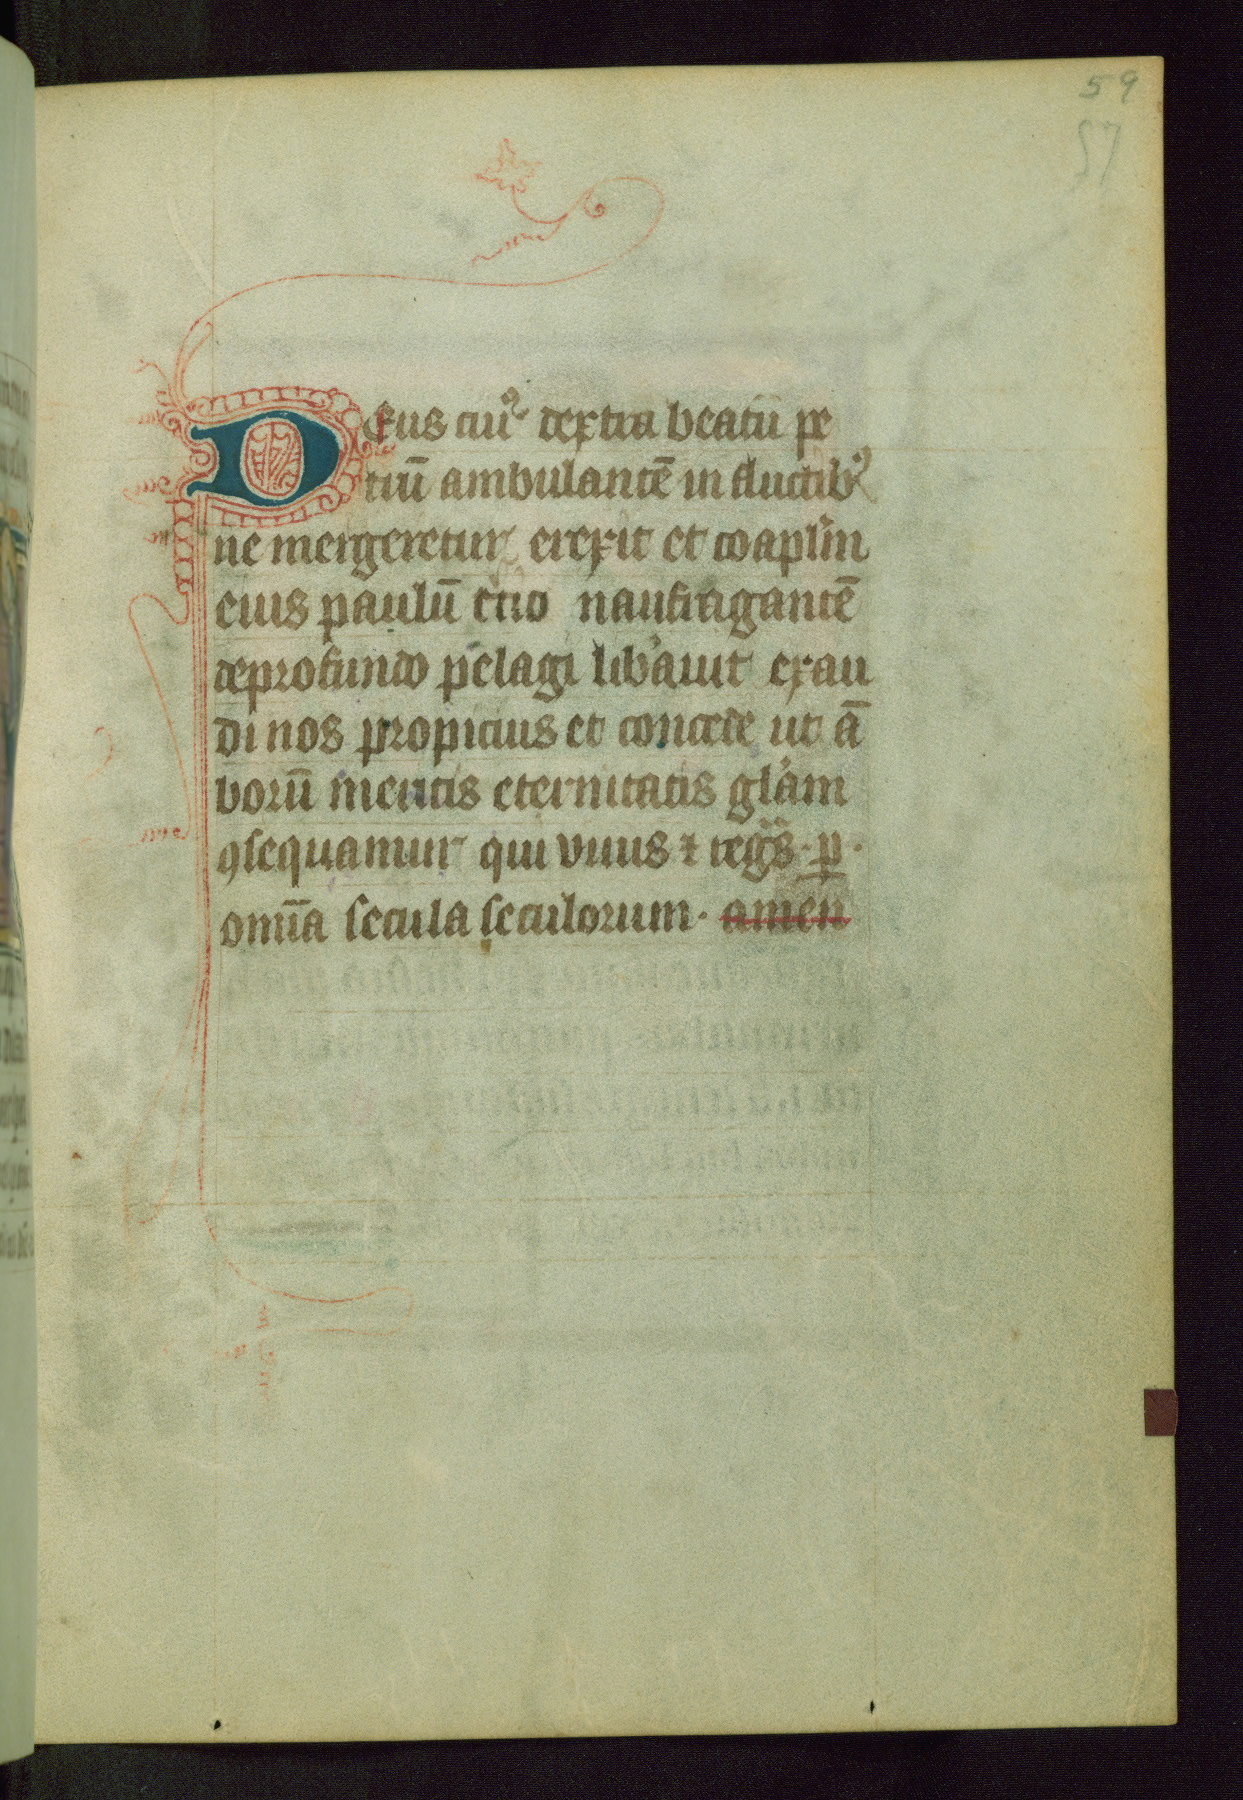 59
57
Deus cui⁹ dextra beatū pe
trū ambulantē in fluctib⁹
ne mergeretur erexit et coap̄lm
eius paulū t̄cio naufragantē
de profundo pelagi lib̾auit exau
di nos propicius et concede ut ā
borū meritis eternitatis gl̾am
ꝯsequamur qui viuis ⁊ regͣs · ꝑ ·
om̄ia secula seculorum · amen